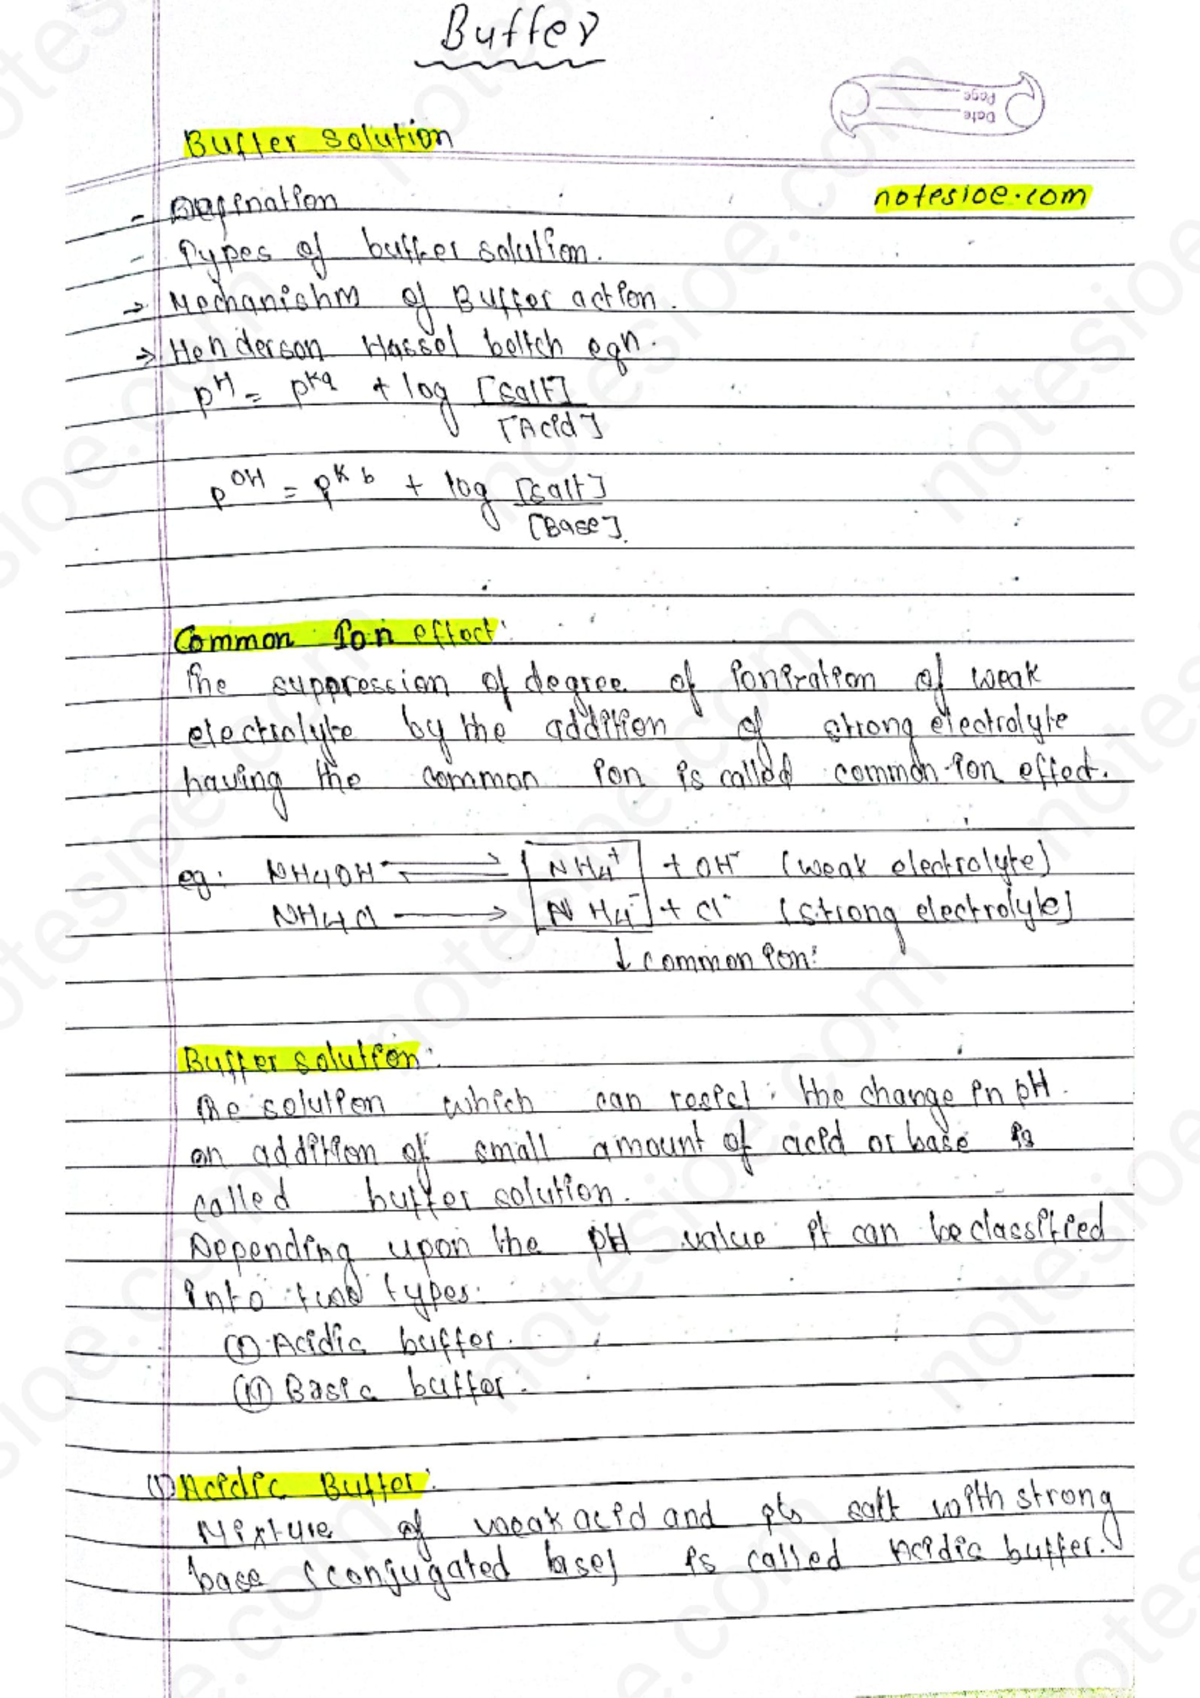 Buffer
Date
Page
Buffer solution
notesioe.com
- Defination
- Types of buffer solution.
→ Mechanishm of Buffer action.
→ Henderson Hassel beltch eqn.
pH = pKa + log [salt]
[Acid]
pOH = pKb + log [salt]
[Base].
Common Ion effect:
The suppression of degree of ionization of weak
electrolyte by the addition of strong electrolyte
having the common ion is called common-ion effect.
eg: NH4OH ⇌ NH4+ + OH- (weak electrolyte)
NH4Cl → NH4- + Cl- (strong electrolyte)
↓ common ion:
Buffer solution:
The solution which can resist the change in pH
on addition of small amount of acid or base is
called buffer solution.
Depending upon the pH value it can be classified
into two types.
(i) Acidic buffer.
(ii) Basic buffer.
(i) Acidic Buffer:
Mixture of weak acid and its salt with strong
base (conjugated base) is called Acidic buffer.